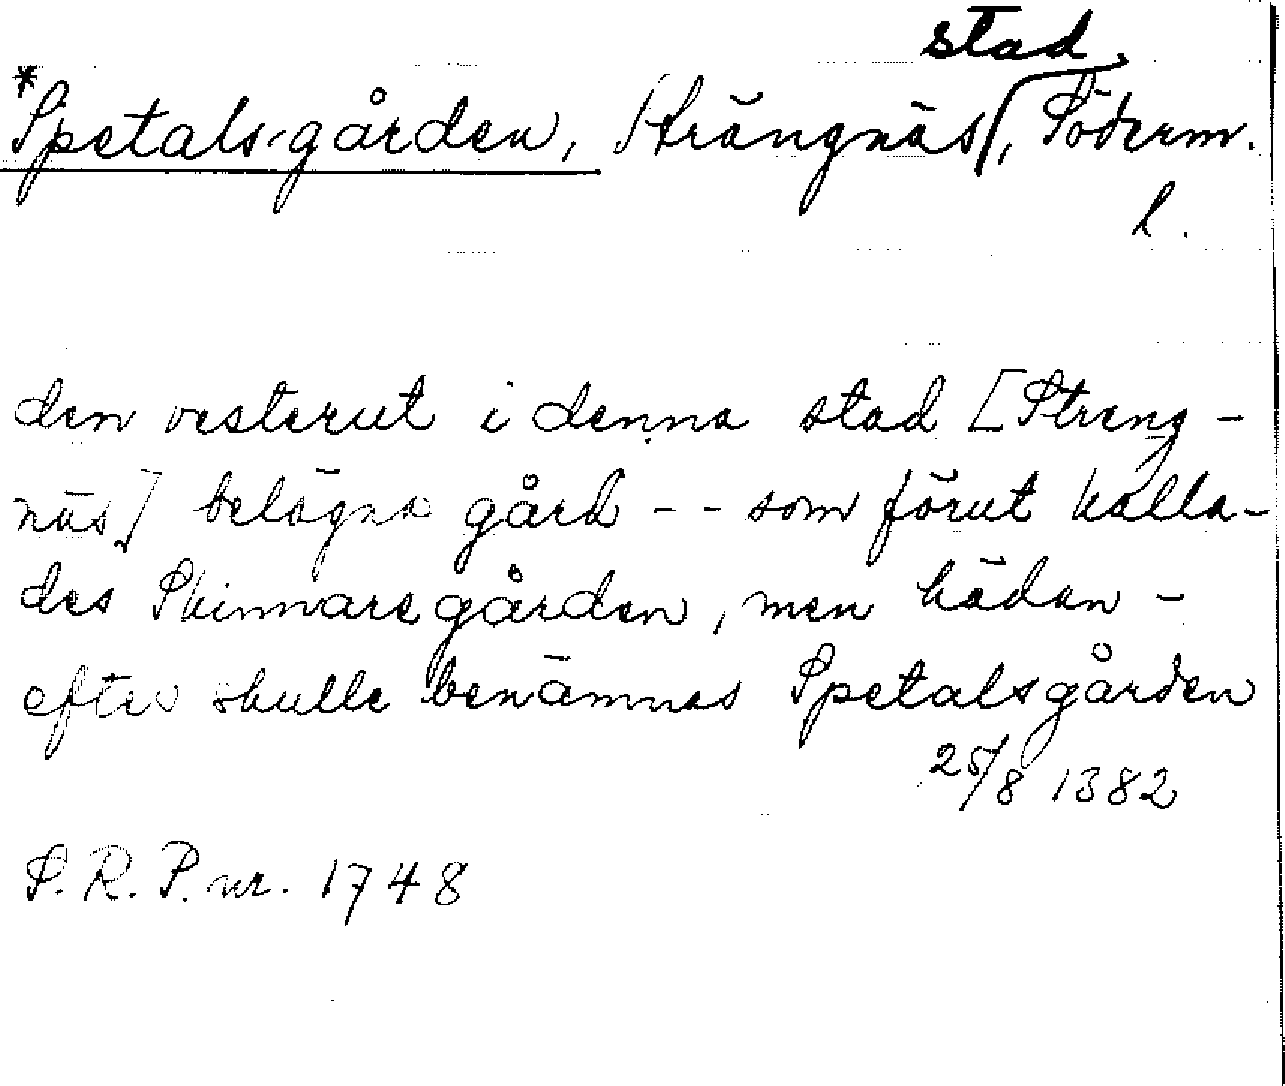 *Spetalsgården, Strängnäs stad, Söderm.
l.
den vesterut i denna stad [Streng-
näs] belägna gård -- som förut kalla-
des Skinnaregården, men hädan-
efter skulle benämnas Spetalsgården
25/8 1382
S. R. P. nr. 1748